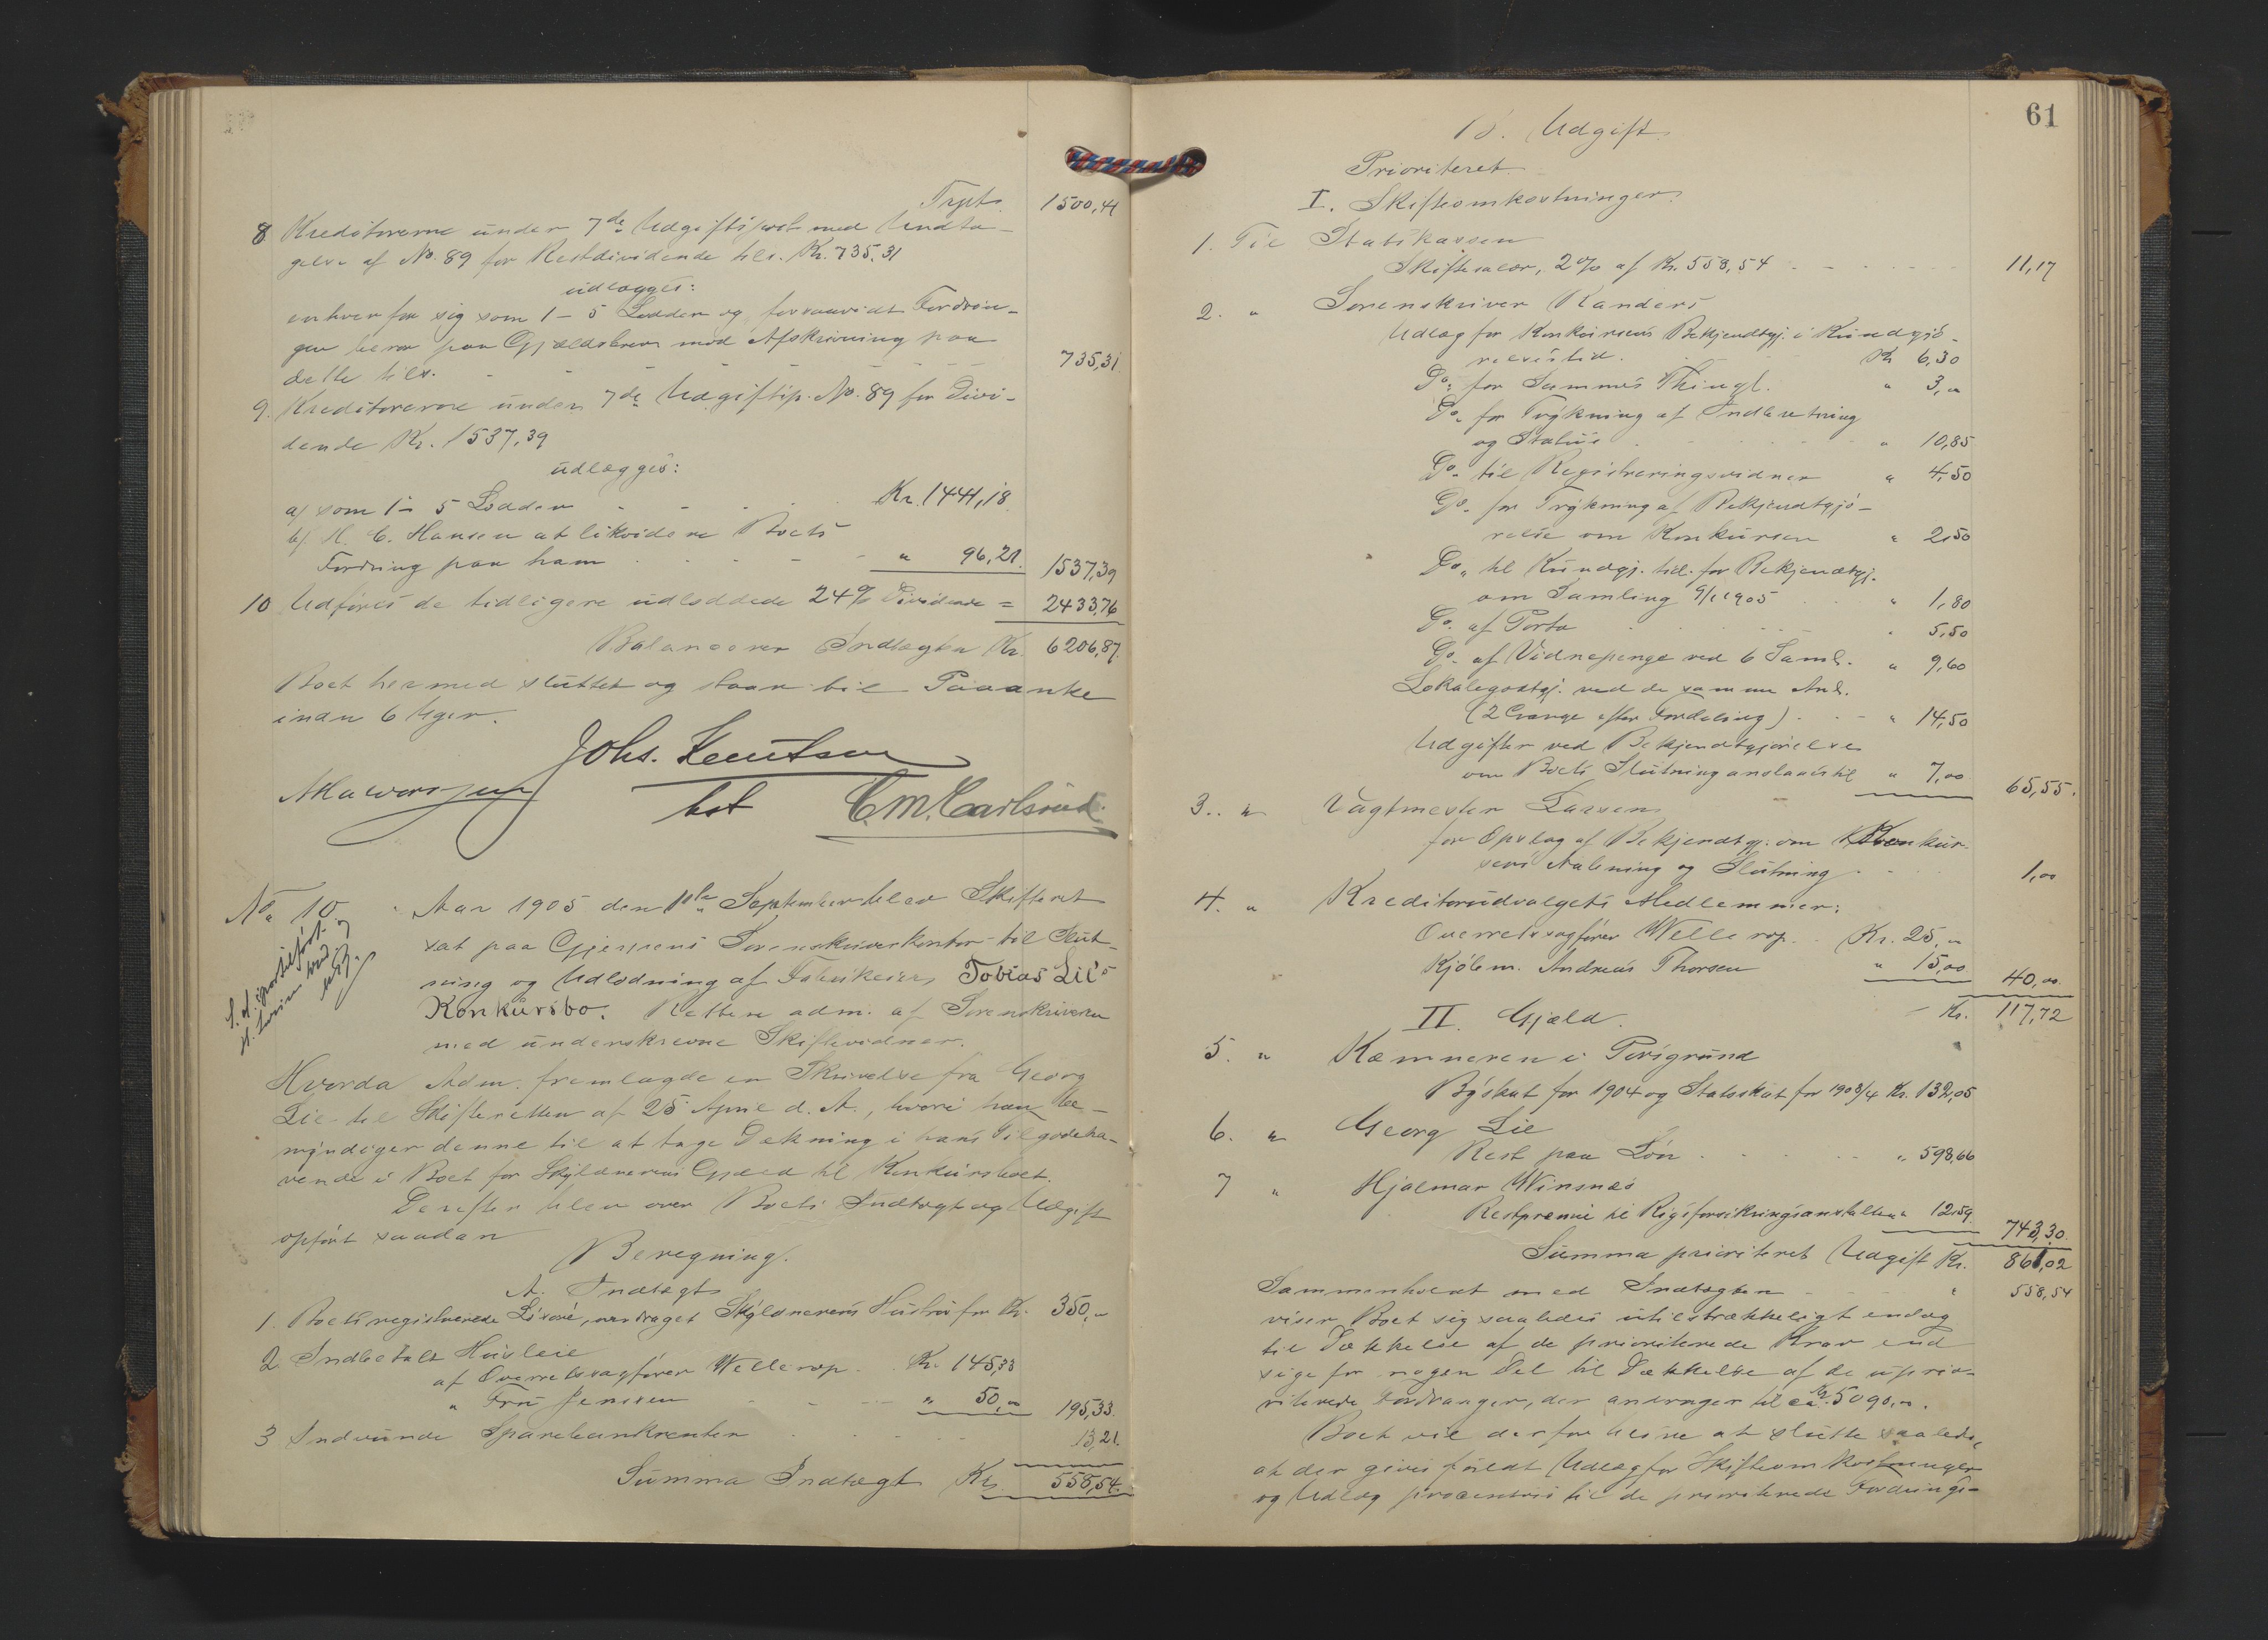 Trpt. 1500,41
8 Kreditorerne under 7de Udgiftspost med Undta-
gelse af No. 89 for Restdividende tils. Kr. 735,31
udlægges:
enhver for sig som 1-5 Lodder og forsaavidt Fordrin-
gen bærer paa Gjældsbrev mod Afskrivning paa
dette tils. 735,31
9. Kreditorerne under 7de Udgiftsp. No. 89 for Divi-
dende Kr. 1537,39
udlægges:
a) som 1-5 Lodder Kr. 1441,18
b) H. C. Hansen at likvidere Boets
Fordring paa ham " 96,21. 1537,39
10 Udføres de tidligere udloddede 24% Dividende = 2433,76
Balancerer Indtægten Kr. 6206,87.
Boet hermed sluttet og staar til Paaanke
inden 6 Uger.
Johs. Knutsen
tst C. M. Carlsrud
No. 10. Aar 1905 den 11te September blev Skifteret
sat paa Gjerpens Sorenskriverkontor til Slut-
ning og Udlodning af Fabrikeier Tobias Lie's
Konkursbo. Retten adm. af Sorenskriveren
med underskrevne Skiftevidner.
Hvorda Adm. fremlagde en Skrivelse fra Georg
Lie til Skifteretten af 25 April d. A., hvori han be-
myndiger denne til at tage Dekning i hans Tilgodeha-
vende i Boet for Skyldnerens Gjæld til Konkursboet.
Derefter blev over Boets Indtægt og Udgift
opført saadan
Beregning.
A. Indtægt
1. Boets registrerede Løsøre, overdraget Skyldnerens Hustru for Kr. 350,"
2 Indbetalt Husleie
af Overretssagfører Wellerop Kr. 145,33
" Fru Jensen " 50,00 195,33.
3 Indvundne Sparebankrenter 13,21.
Summa Indtægt Kr. 558,54.
61
B. Udgift.
Prioriteret
I. Skifteomkostninger.
1. Til Statskassen
Skiftesalær, 2% af Kr. 558,54 11,17
2. " Sorenskriver Randers
Udlæg for Konkursens Bekjendtgj. i Kundgjø-
relsestid. Kr 6,30
Do. for Sammes Thingl. " 3,"
Do. for Trykning af Indberetning
og Status " 10,85
Do. til Registreringsvidner " 4,50
Do. for Trykning af Bekjendtgjø-
relse om Konkursen " 2,50
Do. til Kundgj. tid. for Bekjendtgj.
om Samling 9/1 1905 " 1,80
Do. af Porto " 5,50
Do. af Vidnepenge ved 6 Saml. " 9,60
Lokalegodtgj. ved de samme Anl.
(2 Gange efter Fordeling) " 14,50
Udgifter ved Bekjendtgjørelse
om Boets Slutning anslaaes til " 7,00 65,55.
3. " Vagtmester Larsen
for Opslag af Bekjendtgj. om Konkur-
sens Aabning og Slutning 1,00
4. " Kreditorudvalgets Medlemmer:
Overretssagfører Wellerop Kr. 25,"
Kjøbm. Andreas Thorsen " 15,00 40,00.
Kr. 117,72
II. Gjæld.
5. " Kæmneren i Porsgrund
Byskat for 1904 og Statsskat for 1903/4 Kr. 132,05
6. " Georg Lie
Rest paa Løn " 598,66
7 " Hjalmar Winsnæs
Restpremie til Rigsforsikringsanstalten " 12,59 743,30.
Summa prioriteret Udgift Kr. 861,02
Sammenholdt med Indtægten " 558,54
viser Boet sig saaledes utilstrækkeligt endog
til Dækkelse af de prioriterede Krav end
sige for nogen Del til Dækkelse af de uprio-
riterede Fordringer, der andrager til ca. Kr. 5090,".
Boet vil derfor blive at slutte saaledes
at der gives fuldt Udlæg for Skifteomkostninger
og Udlæg procentvis til de prioriterede Fordrings-